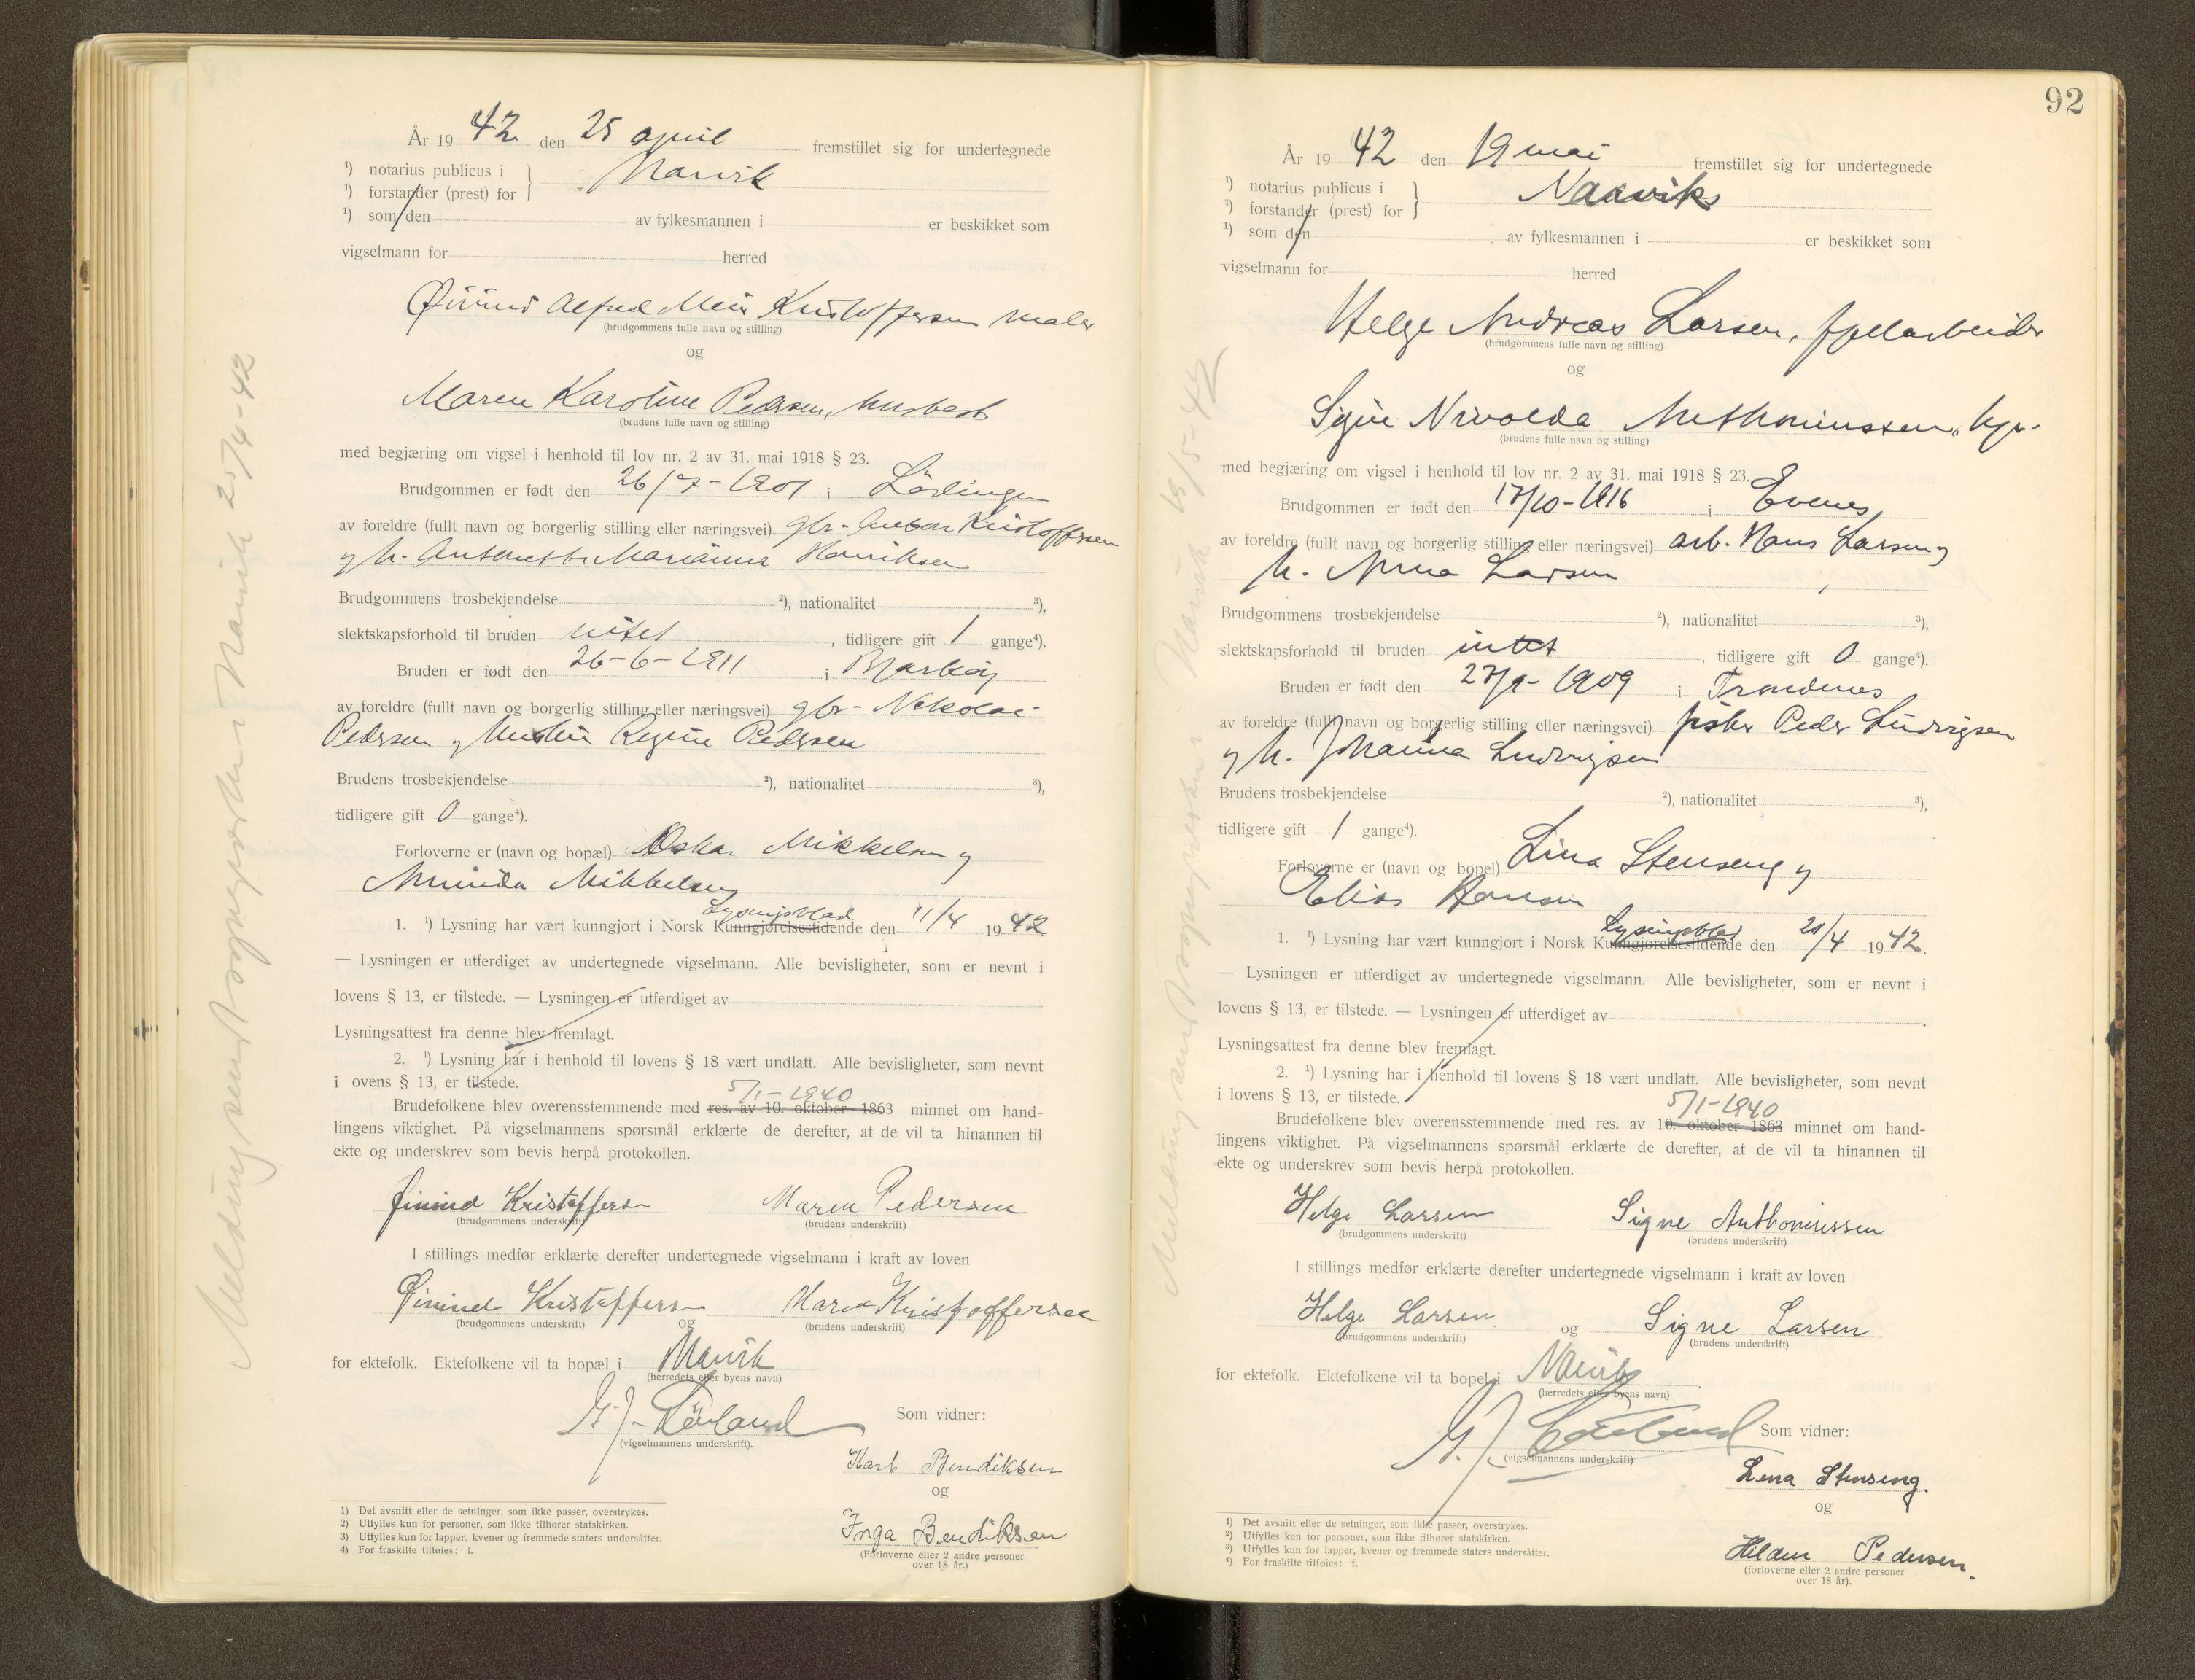 År 19 42 den 25 april fremstillet sig for undertegnede
¹) notarius publicus i } Narvik
¹) forstander (prest) for
¹) som den av fylkesmannen i er beskikket som
vigselmann for herred
Øivind Alfred Kristoffersen maler
(brudgommens fulle navn og stilling)
og
Maren Karoline Pedersen, husbest
(brudens fulle navn og stilling)
med begjæring om vigsel i henhold til lov nr. 2 av 31. mai 1918 § 23.
Brudgommen er født den 26/7-1901 i Lødingen
av foreldre (fullt navn og borgerlig stilling eller næringsvei) gbr. Anton Kristoffersen
og h. Marianna Henriksen
Brudgommens trosbekjendelse ²), nationalitet ³),
slektskapsforhold til bruden intet, tidligere gift 1 gange⁴).
Bruden er født den 26-6-1911 i Bjarkøy
av foreldre (fullt navn og borgerlig stilling eller næringsvei) gbr. Nikolai
Pedersen og Regine Pedersen
Brudens trosbekjendelse ²), nationalitet ³),
tidligere gift 0 gange⁴).
Forloverne er (navn og bopæl) Oskar Mikkelsen og
Mikkelsen
Lysningsblad
1. ¹) Lysning har vært kunngjort i Norsk Kunngjørelsestidende den 11/4 1942
— Lysningen er utferdiget av undertegnede vigselmann. Alle bevisligheter, som er nevnt i
lovens § 13, er tilstede. — Lysningen er utferdiget av
Lysningsattest fra denne blev fremlagt.
2. ¹) Lysning har i henhold til lovens § 18 vært undlatt. Alle bevisligheter, som nevnt
i ovens § 13, er tilstede.
5/1-1940
Brudefolkene blev overensstemmende med res. av 10. oktober 1863 minnet om hand-
lingens viktighet. På vigselmannens spørsmål erklærte de derefter, at de vil ta hinannen til
ekte og underskrev som bevis herpå protokollen.
Øivind Kristoffersen Maren Pedersen
(brudgommens underskrift) (brudens underskrift)
I stillings medfør erklærte derefter undertegnede vigselmann i kraft av loven
Øivind Kristoffersen og Maren Kristoffersen
(brudgommens underskrift) (brudens underskrift)
for ektefolk. Ektefolkene vil ta bopæl i Narvik
(herredets eller byens navn)
(vigselmannens underskrift).
Som vidner:
Karl Bendiksen
og
Inga Bendiksen
(Forloverne eller 2 andre personer
over 18 år.)
1) Det avsnitt eller de setninger, som ikke passer, overstrykes.
2) Utfylles kun for personer, som ikke tilhører statskirken.
3) Utfylles kun for lapper, kvener og fremmede staters undersåtter.
4) For fraskilte tilføies: f.
Melding sendt sognepresten i Narvik 25/4-42
92
År 19 42 den 19 mai fremstillet sig for undertegnede
¹) notarius publicus i } Narvik
¹) forstander (prest) for
¹) som den av fylkesmannen i er beskikket som
vigselmann for herred
Helge Andreas Larsen, fjellarbeider
(brudgommens fulle navn og stilling)
og
Signe Anthoniussen
(brudens fulle navn og stilling)
med begjæring om vigsel i henhold til lov nr. 2 av 31. mai 1918 § 23.
Brudgommen er født den 17/10-1916 i Evenes
av foreldre (fullt navn og borgerlig stilling eller næringsvei) arb. Hans Larsen og
h. Anna Larsen
Brudgommens trosbekjendelse ²), nationalitet ³),
slektskapsforhold til bruden intet, tidligere gift 0 gange⁴).
Bruden er født den 27/9-1909 i Trondenes
av foreldre (fullt navn og borgerlig stilling eller næringsvei) fisker Peder Ludvigsen
og h. Johanna Ludvigsen
Brudens trosbekjendelse ²), nationalitet ³),
tidligere gift 1 gange⁴).
Forloverne er (navn og bopel) Lina Stenseng og
Elias Hansen
Lysningsblad
1. ¹) Lysning har vært kunngjort i Norsk Kunngjørelsestidende den 20/4 1942.
— Lysningen er utferdiget av undertegnede vigselmann. Alle bevisligheter, som er nevnt i
lovens § 13, er tilstede. — Lysningen er utferdiget av
Lysningsattest fra denne blev fremlagt.
2. ¹) Lysning har i henhold til lovens § 18 vært undlatt. Alle bevisligheter, som nevnt
i lovens § 13, er tilstede.
5/1-1940
Brudefolkene blev overensstemmende med res. av 10. oktober 1863 minnet om hand-
lingens viktighet. På vigselmannens spørsmål erklærte de derefter, at de vil ta hinannen til
ekte og underskrev som bevis herpå protokollen.
Helge Larsen Signe Anthoniussen
(brudgommens underskrift) (brudens underskrift)
I stillings medfør erklærte derefter undertegnede vigselmann i kraft av loven
Helge Larsen og Signe Larsen
(brudgommens underskrift) (brudens underskrift)
for ektefolk. Ektefolkene vil ta bopel i Narvik
(herredets eller byens navn)
(vigselmannens underskrift)
Som vidner:
Lena Stenseng.
og
Hildur Pedersen.
(forloverne eller 2 andre personer
over 18 år).
¹) Det avsnitt eller de setninger, som ikke passer, overstrykes.
²) Utfylles kun for personer, som ikke tilhører statskirken.
³) Utfylles kun for lapper, kvener og fremmede staters undersåtter.
⁴) For fraskilte tilføies: f.
Melding sendt sognepresten i Narvik 19/5-42